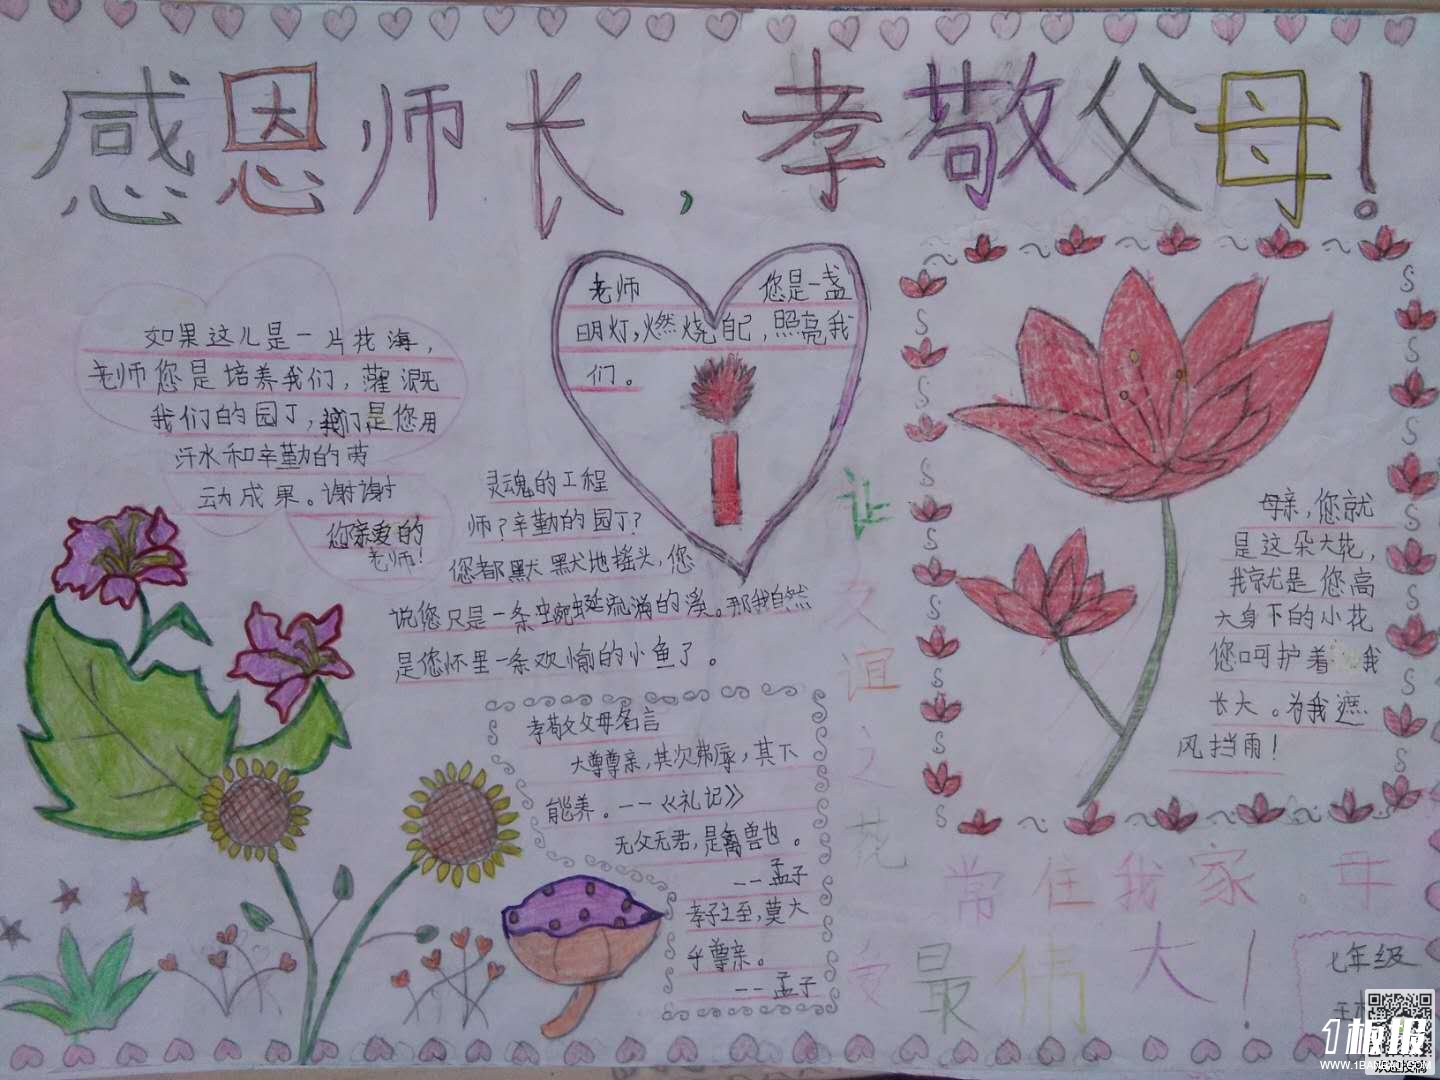 感恩师长,孝敬父母!
如果这儿是一片花海,
老师您是培养我们,灌溉
我们的园丁,我们是您用
汗水和辛勤的劳
动成果。谢谢
您亲爱的
老师!
老师 您是一盏
明灯,燃烧自己,照亮我
们。
灵魂的工程
师?辛勤的园丁?
您都默默地摇头,您
说您只是一条蜿蜒流淌的溪。那我自然
是您怀里一条欢愉的小鱼了。
孝敬父母名言
大尊尊亲,其次弗辱,其下
能养。——《礼记》
无父无君,是禽兽也。
——孟子
孝子之至,莫大
乎尊亲。
——孟子
母亲,您就
是这朵大花,
我就是您高
大身下的小花
您呵护着我
长大。为我遮
风挡雨!
让
友
谊
之
花
常住我家
母
爱
最伟大!
七年级
1板报
WWW.1BANBAO.COM
欢迎投稿